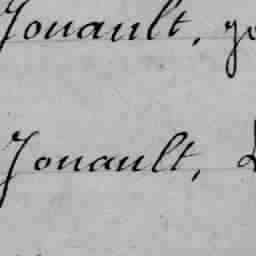 Jouault, ge
Jouault,